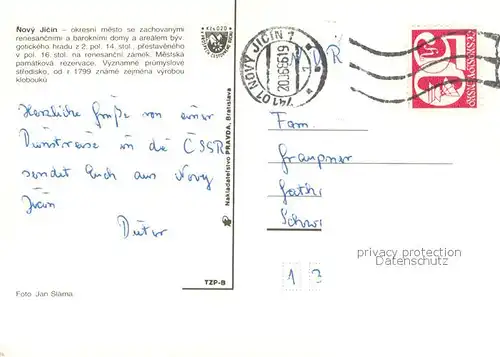 Nový Jičín – okresní město se zachovanými
renesančními a barokními domy a areálem býv.
gotického hradu z 2. pol. 14. stol., přestavěného
v pol. 16. stol. na renesanční zámek. Městská
památková rezervace. Významné průmyslové
středisko, od r 1799 známé zejména výrobou
klobouků
Kčs 0,20
741 01 NOVÝ JIČÍN 1
ČESKOSLOVENSKO
Herzliche Grüße von einer
Dienstreise in die ČSSR
sendet Euch aus Novy
Jicin
Dieter
Nakladatelství PRAVDA, Bratislava
DDR
Fam.
Graupner
privacy protection
Datenschutz
1 3
TZP-B
Foto Jan Sláma